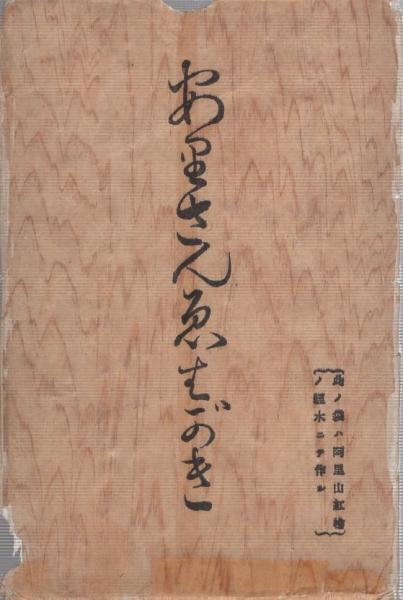 安里さんゑはがき
此ノ袋ハ阿里山紅檜
ノ經木ニテ作ル